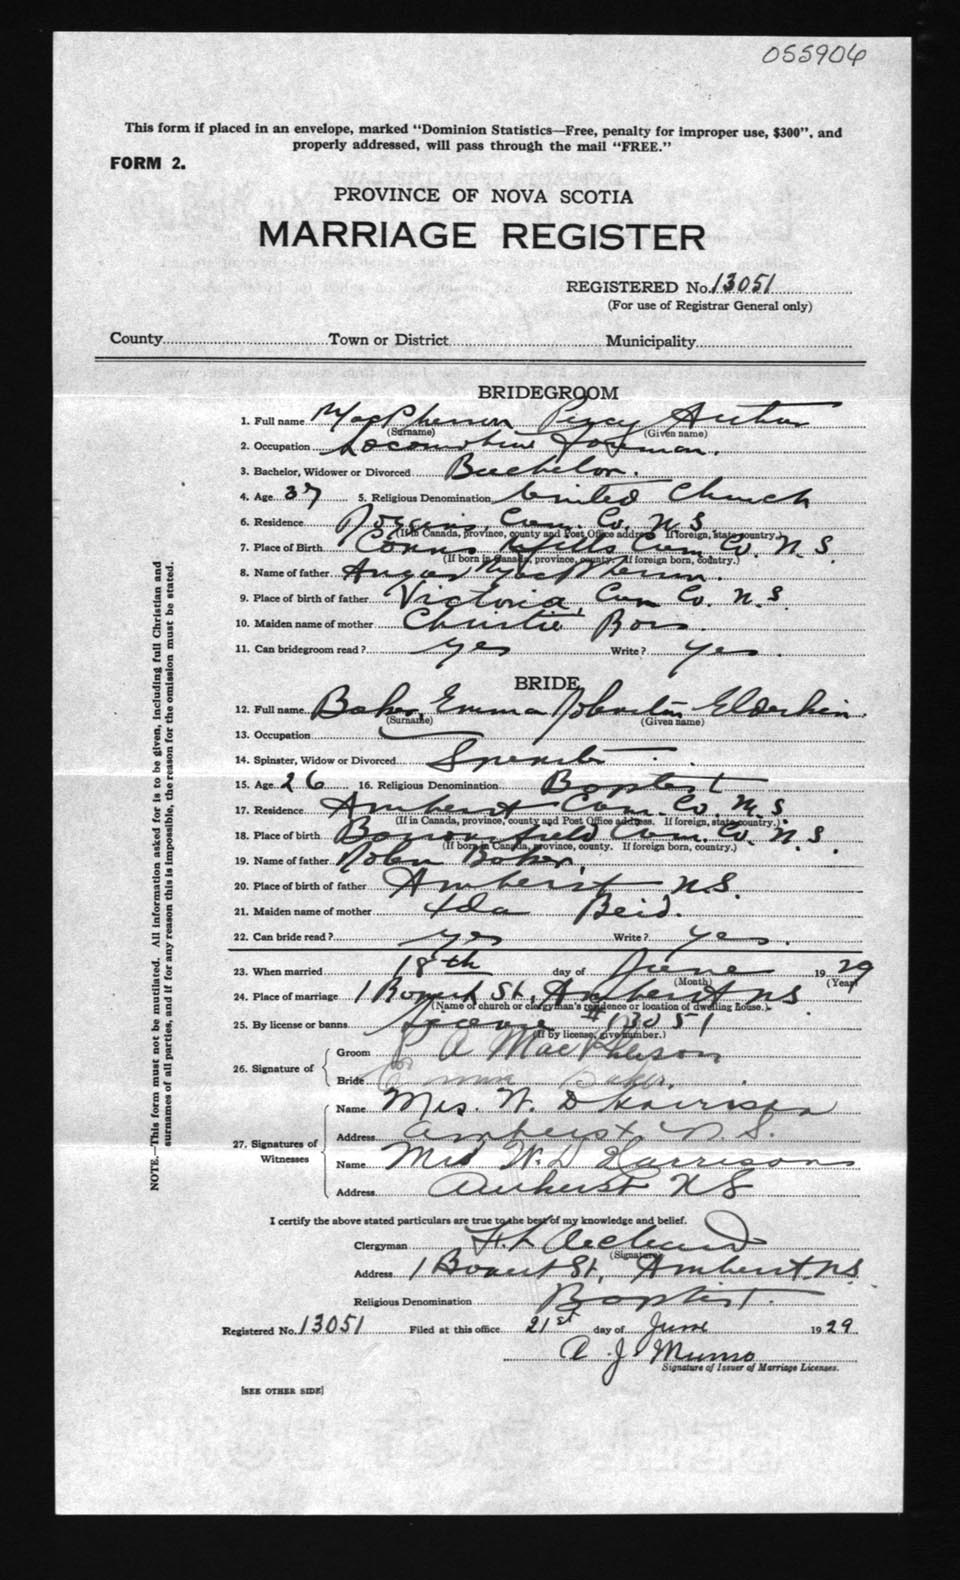 055904
This form if placed in an envelope, marked "Dominion Statistics—Free, penalty for improper use, $300", and
properly addressed, will pass through the mail "FREE."
FORM 2.
PROVINCE OF NOVA SCOTIA
MARRIAGE REGISTER
REGISTERED No. 13051
(For use of Registrar General only)
County Town or District Municipality
BRIDEGROOM
1. Full name MacPherson Percy Arthur
(Surname) (Given name)
2. Occupation Locomotive Foreman.
3. Bachelor, Widower or Divorced Bachelor.
4. Age 37 5. Religious Denomination United Church
6. Residence Joggins, Cum. Co. N.S.
(If in Canada, province, county and Post Office address. If foreign, state country.)
7. Place of Birth Cum Co. N.S.
(If born in Canada, province, county. If foreign born, country.)
8. Name of father Angus MacPherson.
9. Place of birth of father Victoria, Cum Co. N.S.
10. Maiden name of mother Christie Ross.
11. Can bridegroom read? yes Write? yes.
BRIDE
12. Full name Baker, Emma Johnston Elderkin.
(Surname) (Given name)
13. Occupation
14. Spinster, Widow or Divorced Spinster
15. Age 26 16. Religious Denomination Baptist
17. Residence Amherst Cum. Co. N.S.
(If in Canada, province, county and Post Office address. If foreign, state country.)
18. Place of birth Barronsfield Cum. Co. N.S.
(If born in Canada, province, county. If foreign born, country.)
19. Name of father John Baker,
20. Place of birth of father Amherst N.S.
21. Maiden name of mother Ida Reid.
22. Can bride read? yes Write? yes.
23. When married 18th day of June 1929
(Month) (Year)
24. Place of marriage 1 St, Amherst NS
(Name of church or clergyman's residence or location of dwelling house.)
25. By license or banns License #13051
(If by license, give number.)
26. Signature of
Groom P A MacPherson
Bride Emma Baker.
27. Signatures of Witnesses
Name Mrs. W. D Harrison
Address Amherst N.S.
Name W. D Harrison
Address Amherst NS
I certify the above stated particulars are true to the best of my knowledge and belief.
Clergyman
(Signature)
Address 1 St, Amherst, NS.
Religious Denomination Baptist.
Registered No. 13051 Filed at this office 21st day of June 1929
A. J. Munro
Signature of Issuer of Marriage Licenses.
[SEE OTHER SIDE]
NOTE.—This form must not be mutilated. All information asked for is to be given, including full Christian and
surnames of all parties, and if for any reason this is impossible, the reason for the omission must be stated.